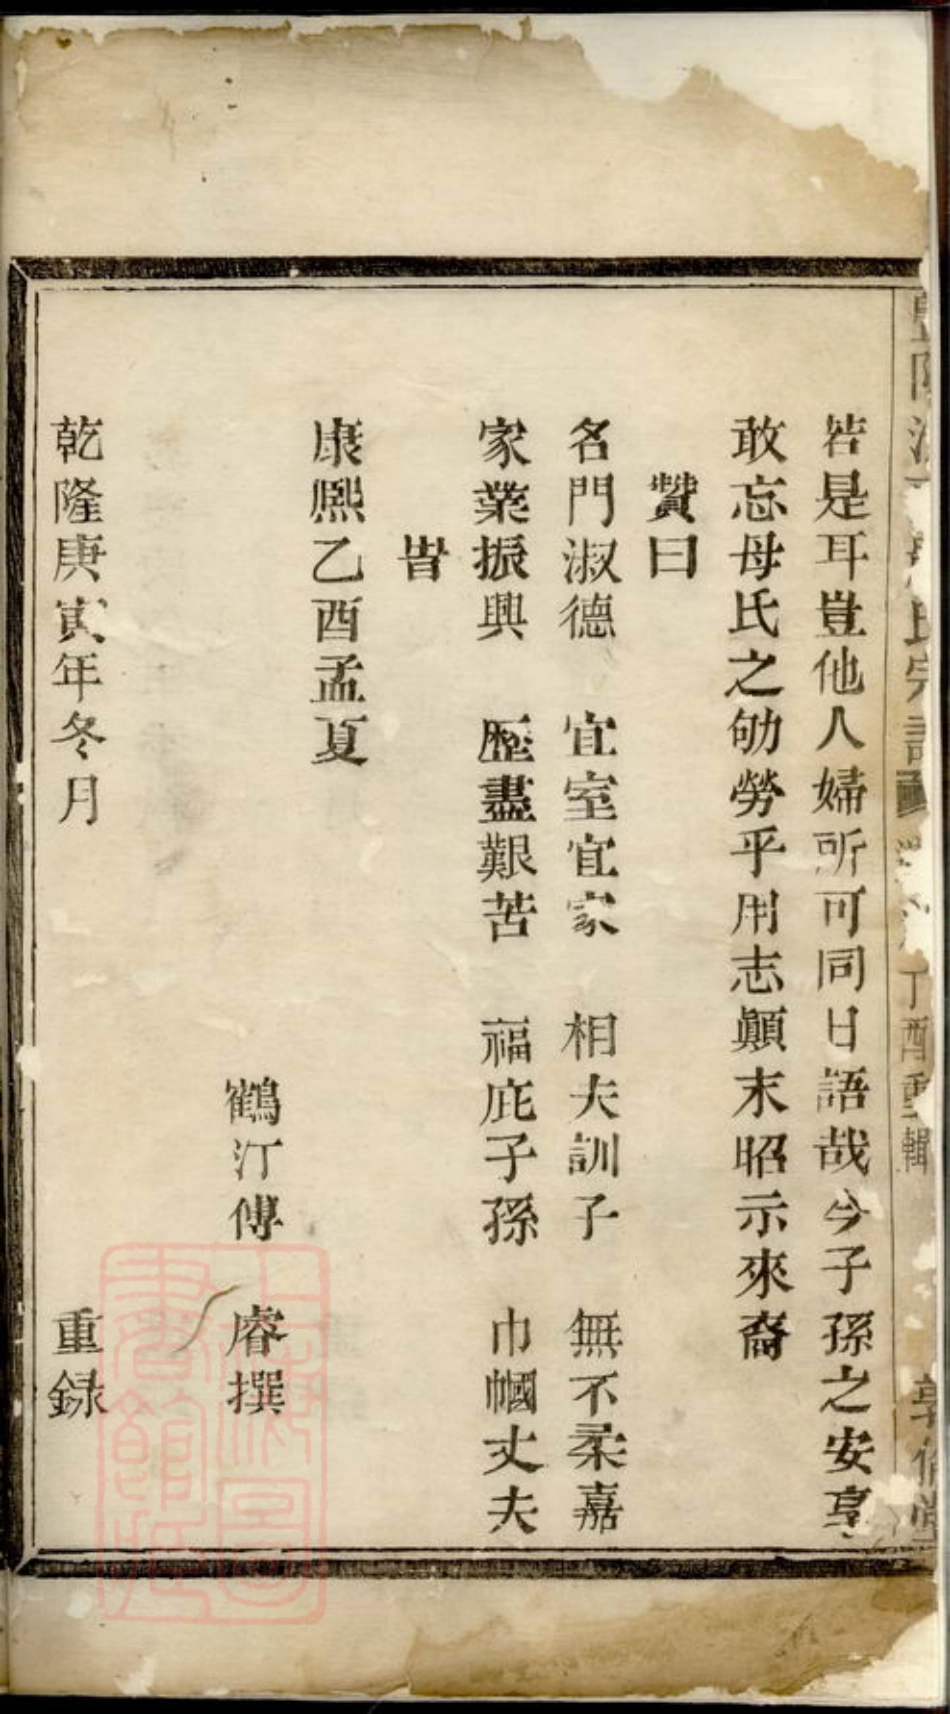 氏宗譜 丁酉重輯
若是耳豈他人婦所可同日語哉今子孫之安享
敢忘母氏之劬勞乎用志顛末昭示來裔
贊曰
名門淑德 宜室宜家 相夫訓子 無不柔嘉
家業振興 歷盡艱苦 福庇子孫 巾幗丈夫
旹
康熙乙酉孟夏
鶴汀傅 睿撰
乾隆庚寅年冬月 重録
上海圖書館藏